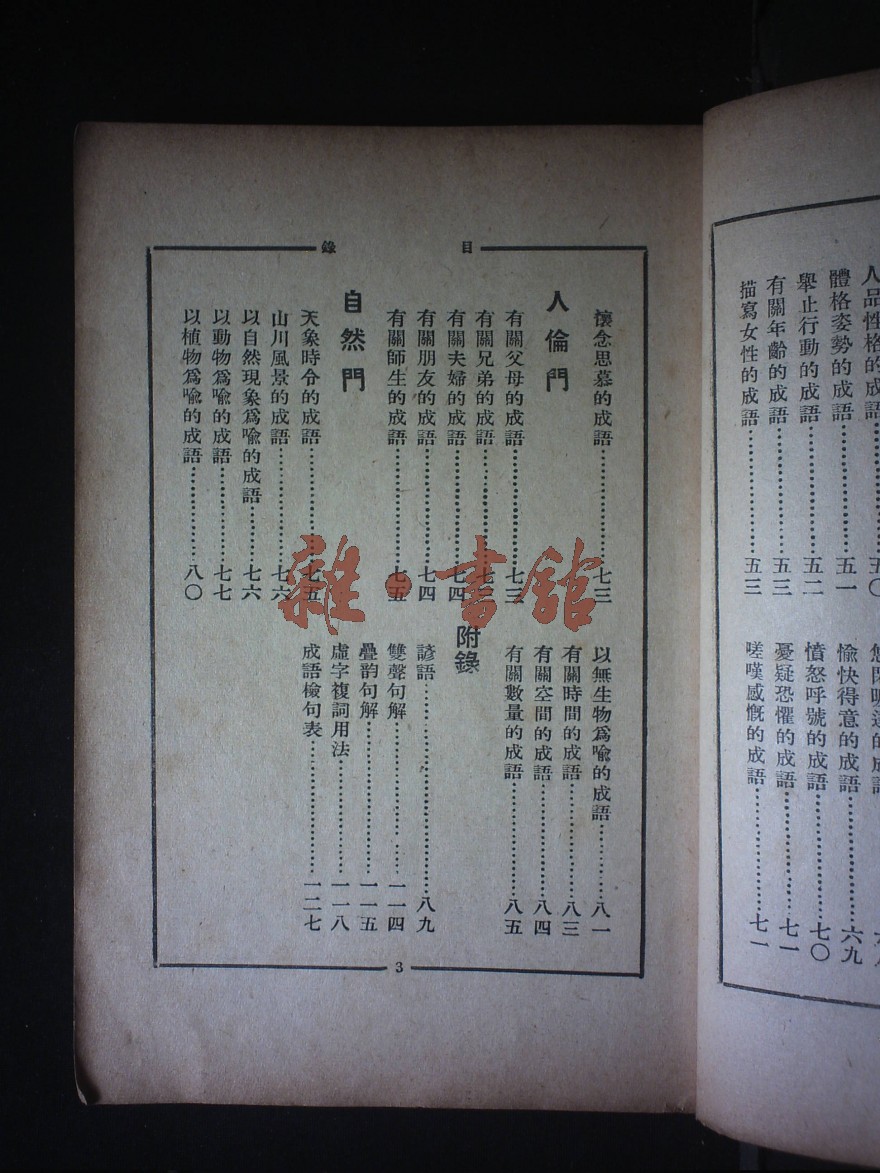 人品性格的成語……五〇
體格姿勢的成語……五一
舉止行動的成語……五二
有關年齡的成語……五三
描寫女性的成語……五三
愉快得意的成語……六九
憤怒呼號的成語……七〇
憂疑恐懼的成語……七一
嗟嘆感慨的成語……七一
目錄
懷念思慕的成語……七三
人倫門
有關父母的成語……七三
有關兄弟的成語……七三
有關夫婦的成語……七四
有關朋友的成語……七四
有關師生的成語……七五
自然門
天象時令的成語……七五
山川風景的成語……七六
以自然現象爲喩的成語……七六
以動物爲喩的成語……七七
以植物爲喩的成語……八〇
以無生物爲喩的成語……八一
有關時間的成語……八三
有關空間的成語……八四
有關數量的成語……八五
附錄
諺語……八九
雙聲句解……一一四
疊韵句解……一一五
虛字複詞用法……一一八
成語檢句表……一二七
3
雜·書館